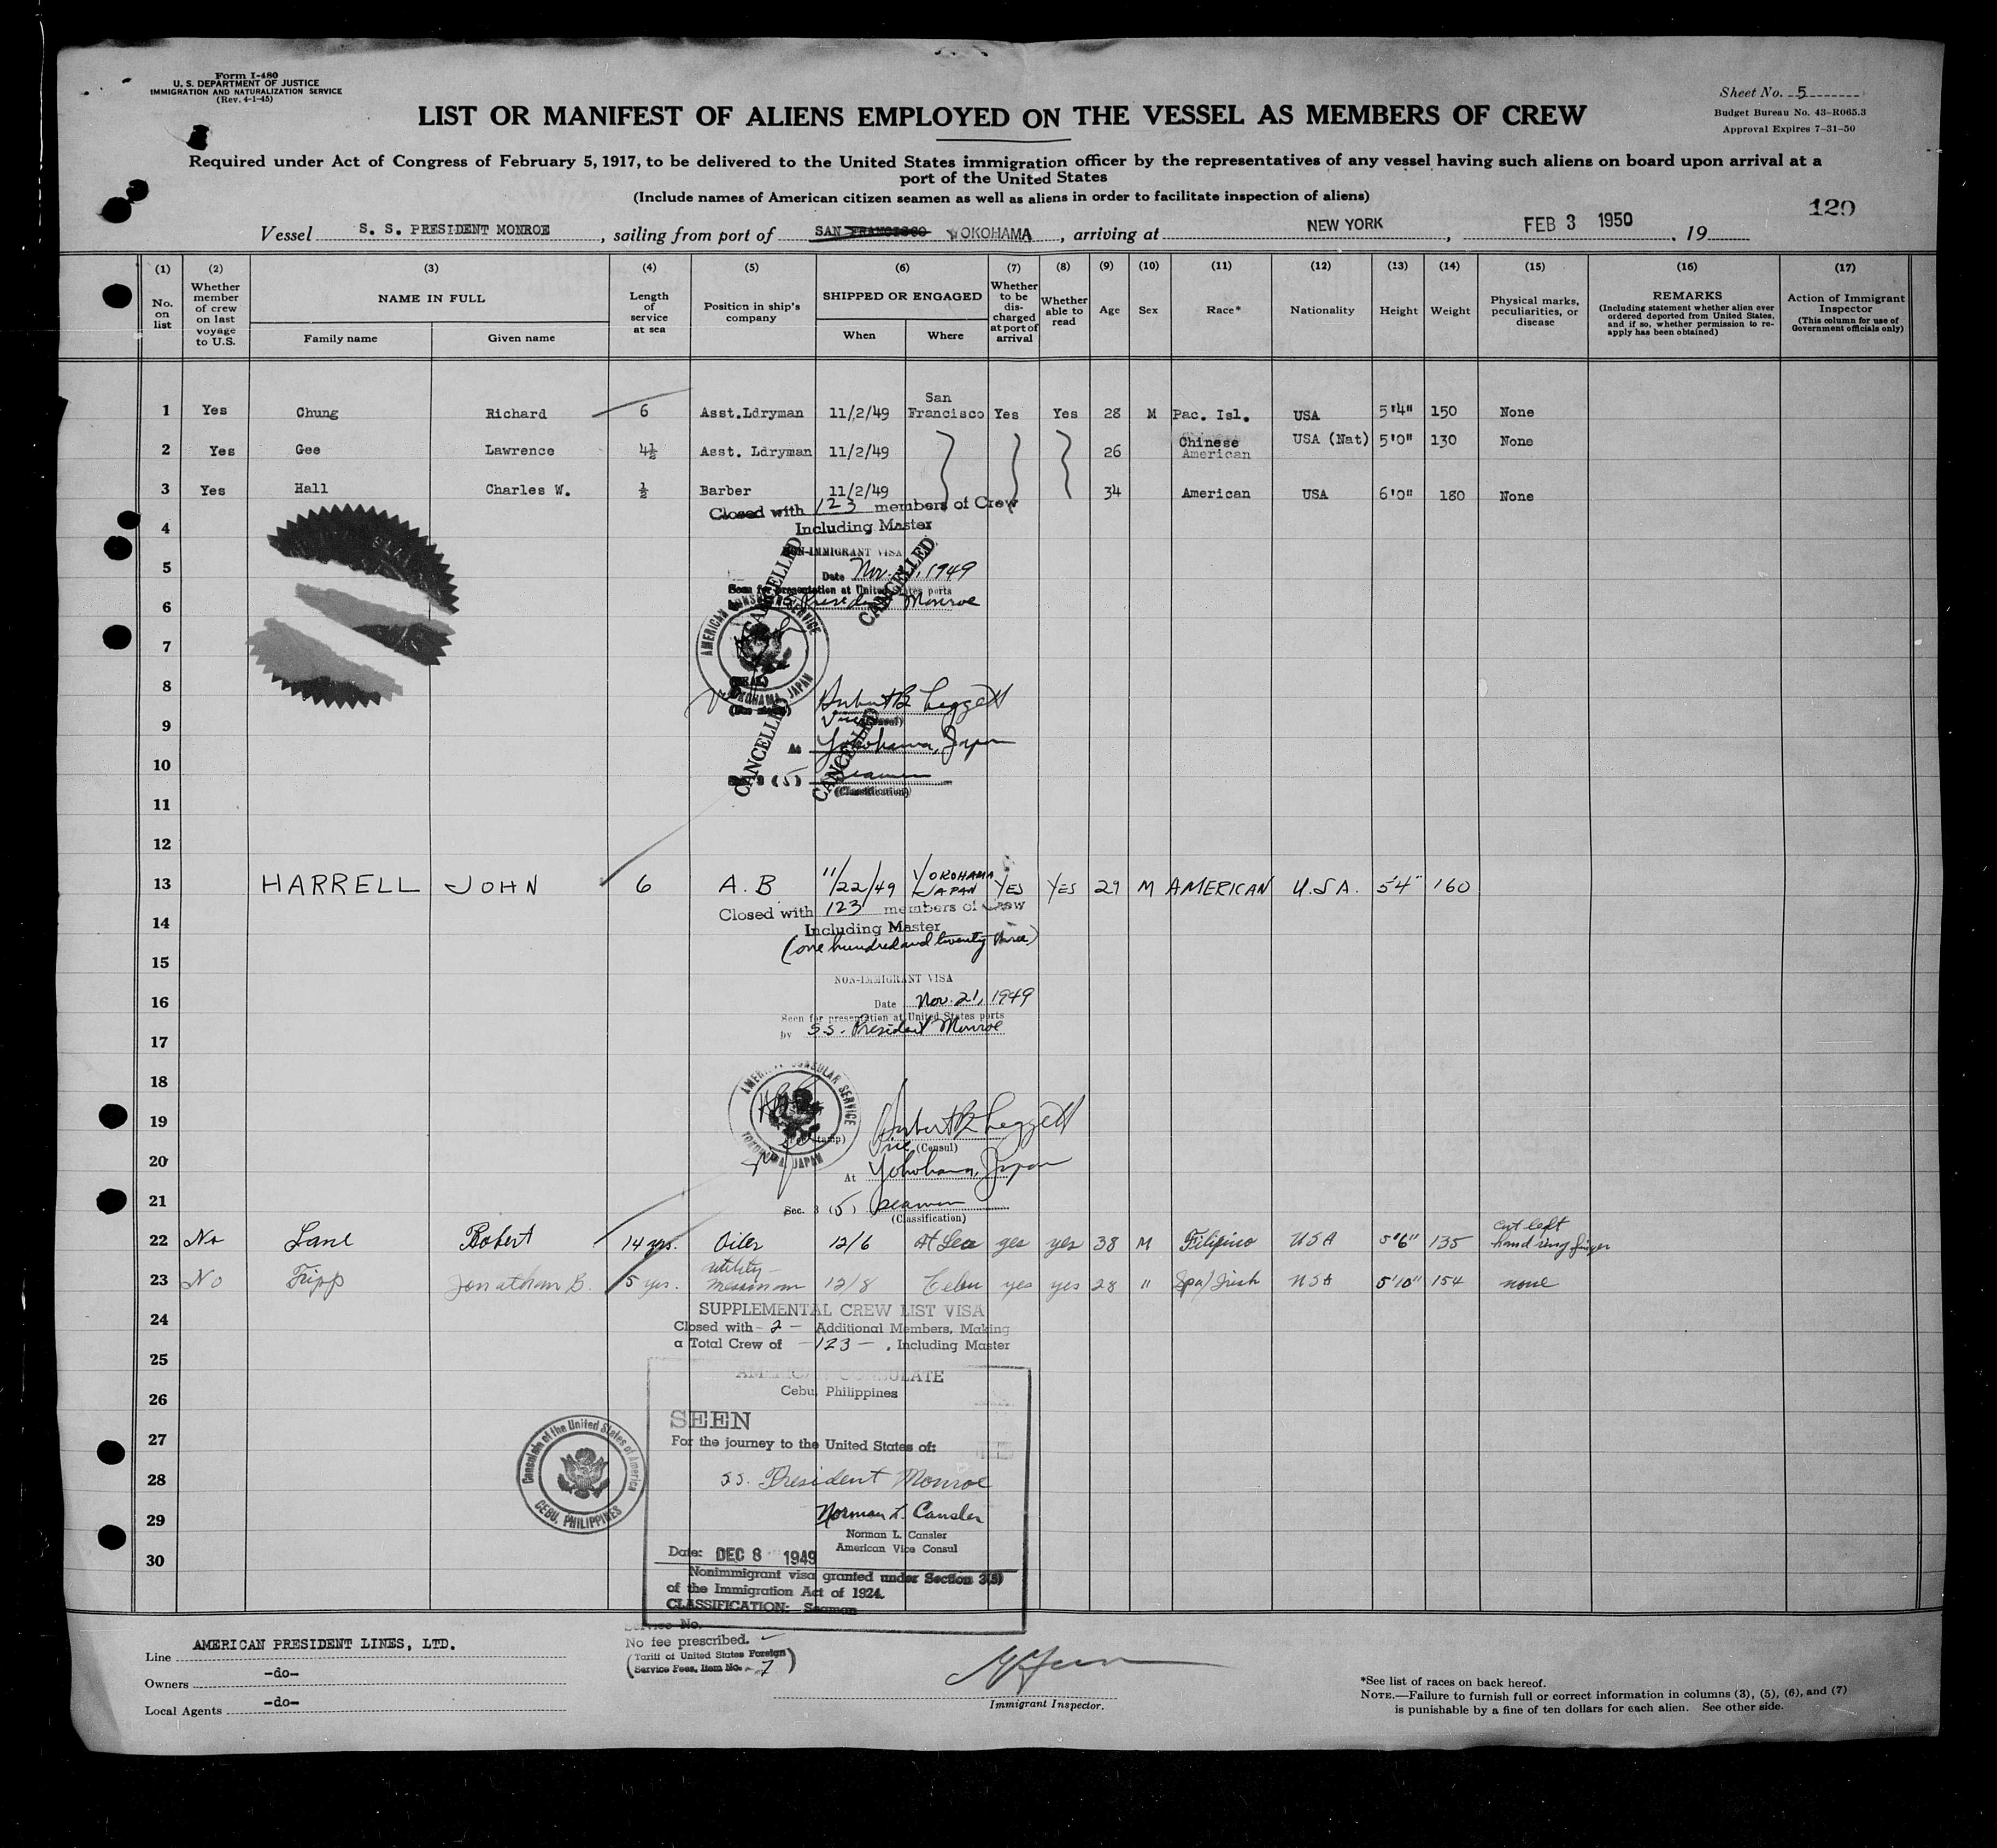 Form I-480
U. S. DEPARTMENT OF JUSTICE
IMMIGRATION AND NATURALIZATION SERVICE
(Rev. 4-1-45)
Sheet No. 5
Budget Bureau No. 43-R065.3
Approval Expires 7-31-50
LIST OR MANIFEST OF ALIENS EMPLOYED ON THE VESSEL AS MEMBERS OF CREW
Required under Act of Congress of February 5, 1917, to be delivered to the United States immigration officer by the representatives of any vessel having such aliens on board upon arrival at a
port of the United States
(Include names of American citizen seamen as well as aliens in order to facilitate inspection of aliens)
129
Vessel S. S. PRESIDENT MONROE, sailing from port of SAN FRANCISCO YOKOHAMA, arriving at NEW YORK, FEB 3 1950, 19
(1) (2) (3) (4) (5) (6) (7) (8) (9) (10) (11) (12) (13) (14) (15) (16) (17)
No. on list
Whether member of crew on last voyage to U.S.
NAME IN FULL
Family name
Given name
Length of service at sea
Position in ship's company
SHIPPED OR ENGAGED
When
Where
Whether to be discharged at port of arrival
Whether able to read
Age
Sex
Race*
Nationality
Height
Weight
Physical marks, peculiarities, or disease
REMARKS
(Including statement whether alien ever ordered deported from United States, and if so, whether permission to re-apply has been obtained)
Action of Immigrant Inspector
(This column for use of Government officials only)
1 Yes Chung Richard 6 Asst.Ldryman 11/2/49 San Francisco Yes Yes 28 M Pac. Isl. USA 5'4" 150 None
2 Yes Gee Lawrence 4½ Asst. Ldryman 11/2/49 26 Chinese American USA (Nat) 5'0" 130 None
3 Yes Hall Charles W. ½ Barber 11/2/49 34 American USA 6'0" 180 None
Closed with 123 members of Crew
4
Including Master
NON-IMMIGRANT VISA
5
Date Nov. 1949
Seen for presentation at United States ports
6
S.S. President Monroe
CANCELLED
CANCELLED
AMERICAN CONSULAR SERVICE
YOKOHAMA, JAPAN
7
8
Hubert B. Leggett
Vice (Consul)
9
At Yokohama, Japan
10
Sec. 3 (5) Seamen
(Classification)
CANCELLED
CANCELLED
11
12
13 HARRELL JOHN 6 A.B 11/22/49 YOKOHAMA JAPAN YES YES 29 M AMERICAN U.S.A. 5'4" 160
Closed with 123 members of Crew
14
Including Master
(one hundred and twenty three)
15
NON-IMMIGRANT VISA
16
Date Nov. 21, 1949
Seen for presentation at United States ports
by S.S. President Monroe
17
18
AMERICAN CONSULAR SERVICE
YOKOHAMA, JAPAN
19
Hubert B. Leggett
Vice (Consul)
20
At Yokohama, Japan
21
Sec. 3 (5) Seamen
(Classification)
22 No Lane Robert 14 yrs. Oiler 12/6 At Sea yes yes 38 M Filipino USA 5'6" 135 cut left hand ring finger
23 No Tripp Jonathan B. 5 yrs. utility-messman 12/8 Cebu yes yes 28 " Spa/Irish USA 5'10" 154 none
24
SUPPLEMENTAL CREW LIST VISA
Closed with -2- Additional Members, Making
a Total Crew of -123-, Including Master
25
AMERICAN CONSULATE
Cebu, Philippines
26
SEEN
27
For the journey to the United States of:
28
SS. President Monroe
Consulate of the United States of America
CEBU, PHILIPPINES
29
Norman L. Cansler
Norman L. Cansler
American Vice Consul
30
Date: DEC 8 1949
Nonimmigrant visa granted under Section 3(5)
of the Immigration Act of 1924.
CLASSIFICATION: Seaman
Service No.
No fee prescribed.
(Tariff of United States Foreign
Service Fees, Item No. 7)
Line AMERICAN PRESIDENT LINES, LTD.
Owners -do-
Local Agents -do-
Immigrant Inspector.
*See list of races on back hereof.
NOTE.—Failure to furnish full or correct information in columns (3), (5), (6), and (7)
is punishable by a fine of ten dollars for each alien. See other side.